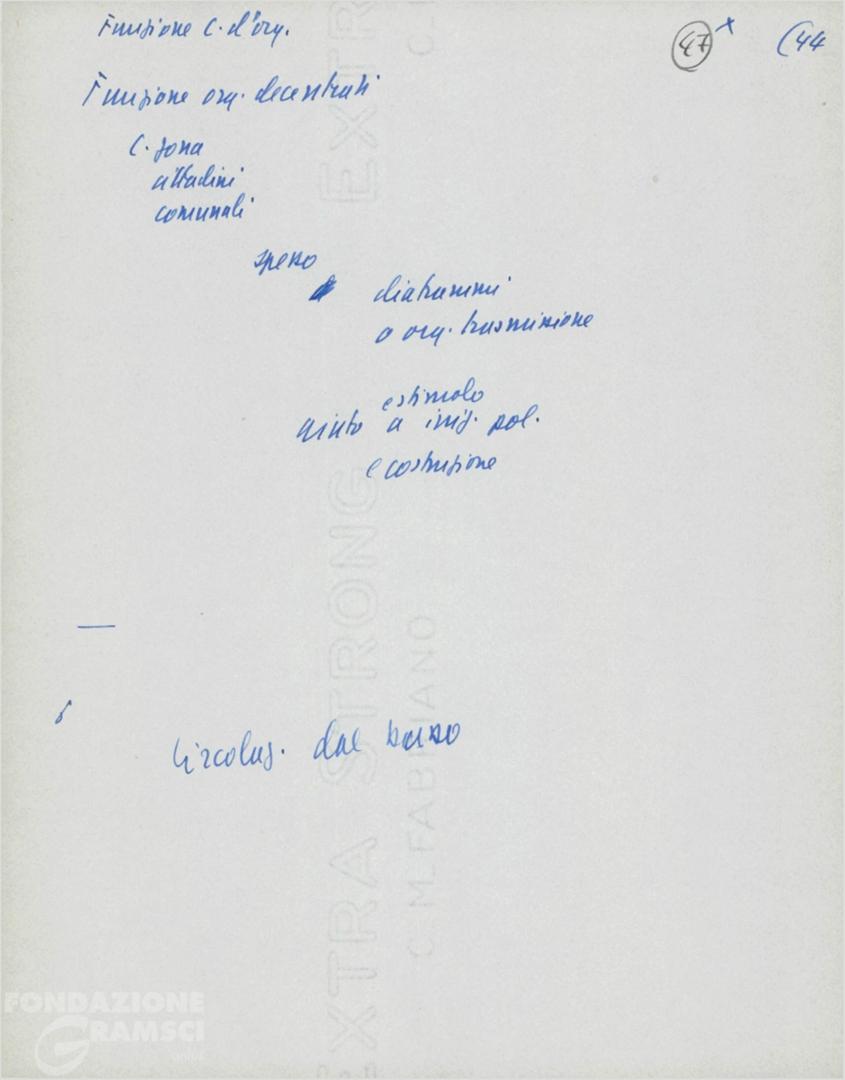 Funzione C. d'org.
47 x (44
Funzione org. decentrati
C. zona
cittadini
comunali
spesso
diaframmi
o org. trasmissione
e stimolo
aiuto a iniz. pol.
e costruzione
—
Circolaz. dal basso
EXTRA STRONG EXTR
C. M. FABRIANO C.
FONDAZIONE
GRAMSCI